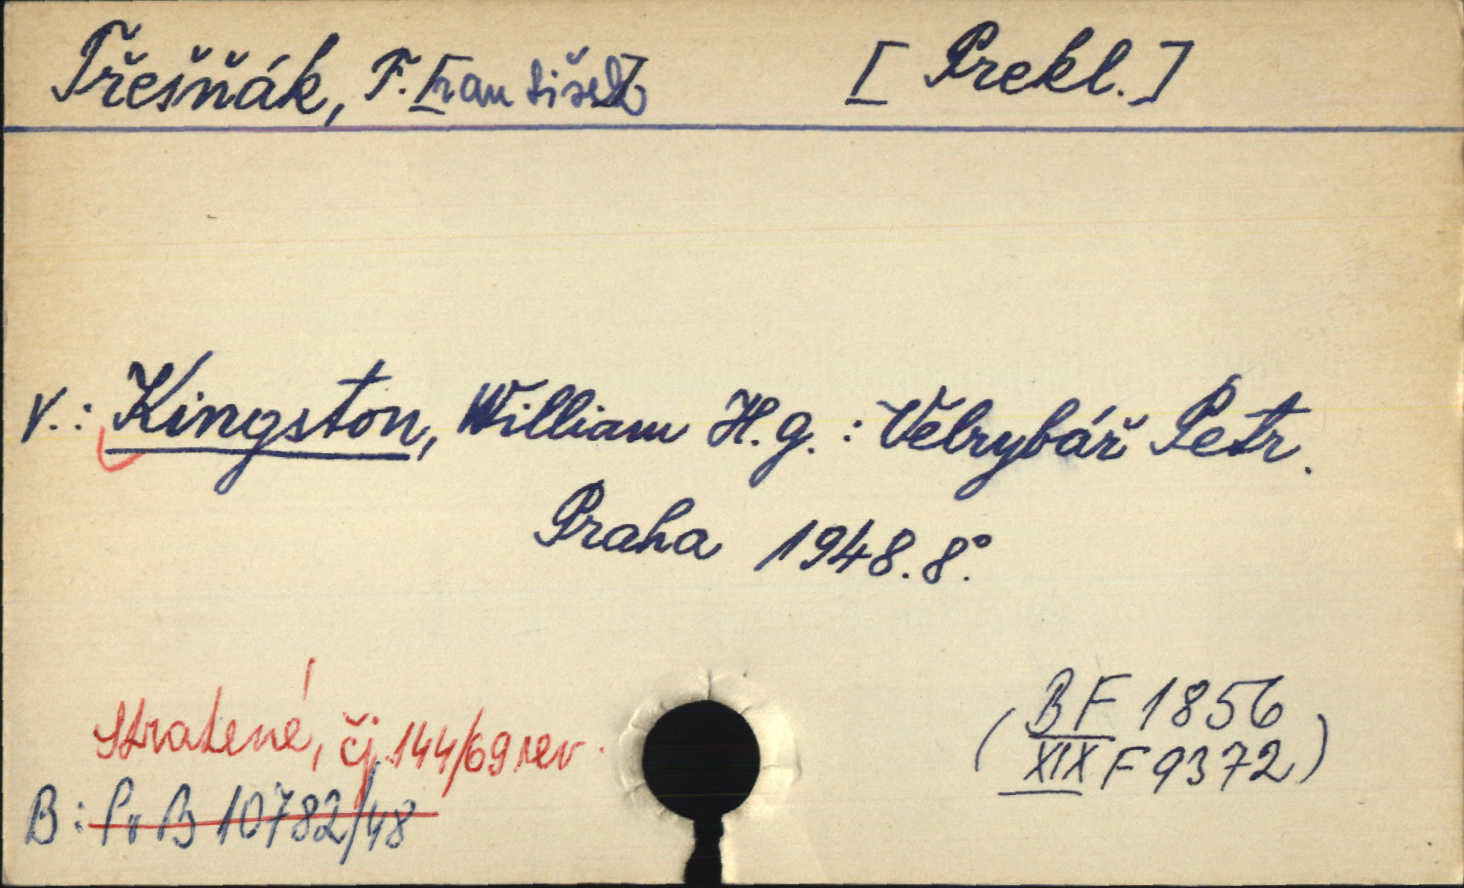 Třešňák, F.[rantišek] [Prekl.]
V.: Kingston, William H. g.: Velrybář Petr.
Praha 1948. 8°.
Stratené, čj. 144/69 rev.
B: Pv B 10782/48
(BF 1856
XIX F 9372)